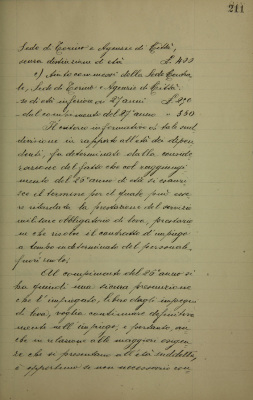 211
Sede di Torino e Agenzie di Città,
senza distinzione di età £. 400
c) Ausiliari commessi della Sede Centra-
le, Sede di Torino e Agenzie di Città:
se di età inferiore ai 27 anni £. 
dal compimento del 27° anno " 350
Il criterio informativo di tale sud-
divisione in rapporto all'età dei dipen-
denti, fu determinato dalla conside-
razione del fatto che col raggiungi-
mento del 26° anno d'età si esauri-
sce il termine per il quale può esse-
re ritardata la prestazione del servizio
militare obbligatorio di leva, prestazio-
ne che risolve il contratto d'impiego
a tempo indeterminato del personale
fuori ruolo.
Al compimento del 26° anno si
ha quindi una sicura presunzione
che l'impiegato, libero dagli impegni
di leva, voglia continuare definitiva-
mente nell'impiego, e pertanto, an-
che in relazione alle maggiori esigen-
ze che si presentano all'età suddetta,
è opportuno se non necessario con-